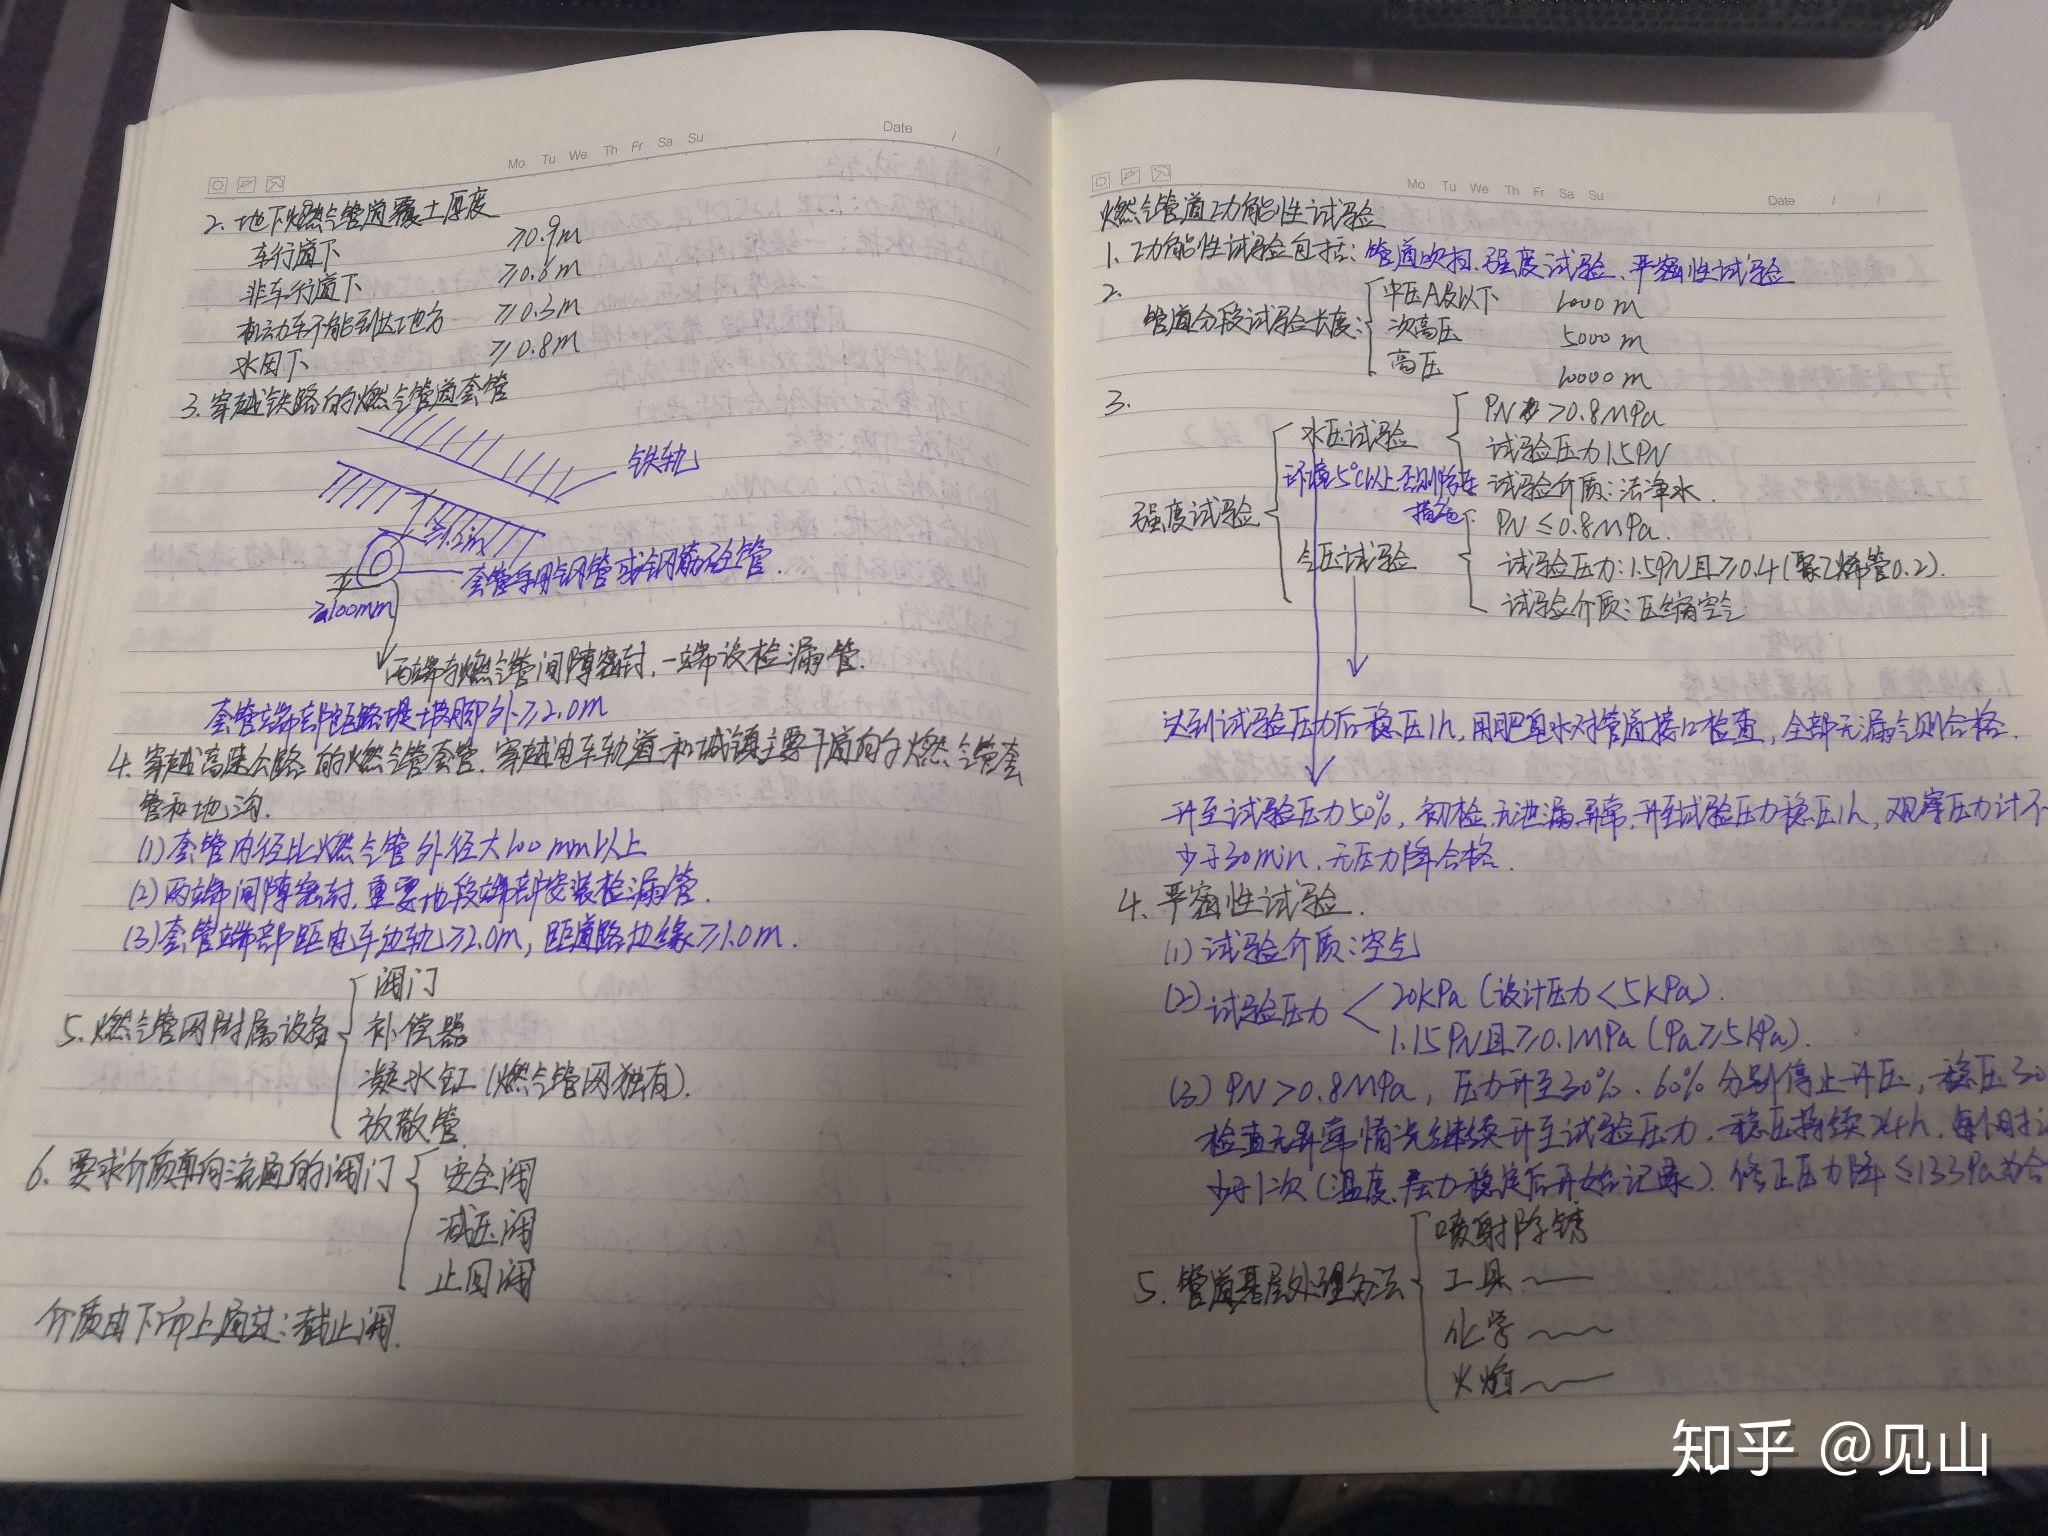 Mo Tu We Th Fr Sa Su
Date / /
2. 地下燃气管道覆土厚度
车行道下 ≥0.9m
非车行道下 ≥0.6m
机动车不能到达地方 ≥0.3m
水田下 ≥0.8m
3. 穿越铁路的燃气管道套管
铁轨
≥1.2m
套管宜用钢管或钢筋砼管.
≥100mm
两端与燃气管间隙密封,一端设检漏管.
套管端部距路堤坡脚外≥2.0m
4. 穿越高速公路的燃气管套管.穿越电车轨道和城镇主要干道的燃气管套
管和地沟.
(1) 套管内径比燃气管外径大100mm以上
(2) 两端间隙密封,重要地段端部安装检漏管.
(3) 套管端部距电车边轨≥2.0m,距道路边缘≥1.0m.
5. 燃气管网附属设备
阀门
补偿器
凝水缸(燃气管网独有).
放散管.
6. 要求介质单向流通的阀门
安全阀
减压阀
止回阀
介质由下而上通过:截止阀.
Mo Tu We Th Fr Sa Su
Date / /
燃气管道功能性试验
1. 功能性试验包括:管道吹扫、强度试验、严密性试验
2.
管道分段试验长度:
中压A及以下 1000m
次高压 5000m
高压 10000m
3.
强度试验
水压试验
PN >0.8MPa
试验压力1.5PN
环境5℃以上,否则防冻
措施.
试验介质:洁净水.
气压试验
PN≤0.8MPa.
试验压力:1.5PN且≥0.4(聚乙烯管0.2).
试验介质:压缩空气
达到试验压力后稳压1h,用肥皂水对管道接口检查,全部无漏气则合格.
升至试验压力50%,初检,无泄漏、异常,升至试验压力稳压1h,观察压力计不
少于30min,无压力降合格.
4. 严密性试验.
(1) 试验介质:空气
(2) 试验压力
20kPa(设计压力<5kPa).
1.15PN且≥0.1MPa(Pa≥5kPa).
(3) PN>0.8MPa,压力升至30%、60%分别停止升压,稳压30
检查无异常情况继续升至试验压力.稳压持续24h,每小时记
少于1次(温度、压力稳定后开始记录).修正压力降≤133Pa为合
5. 管道基层处理办法
喷射除锈
工具
化学
火焰
知乎 @见山